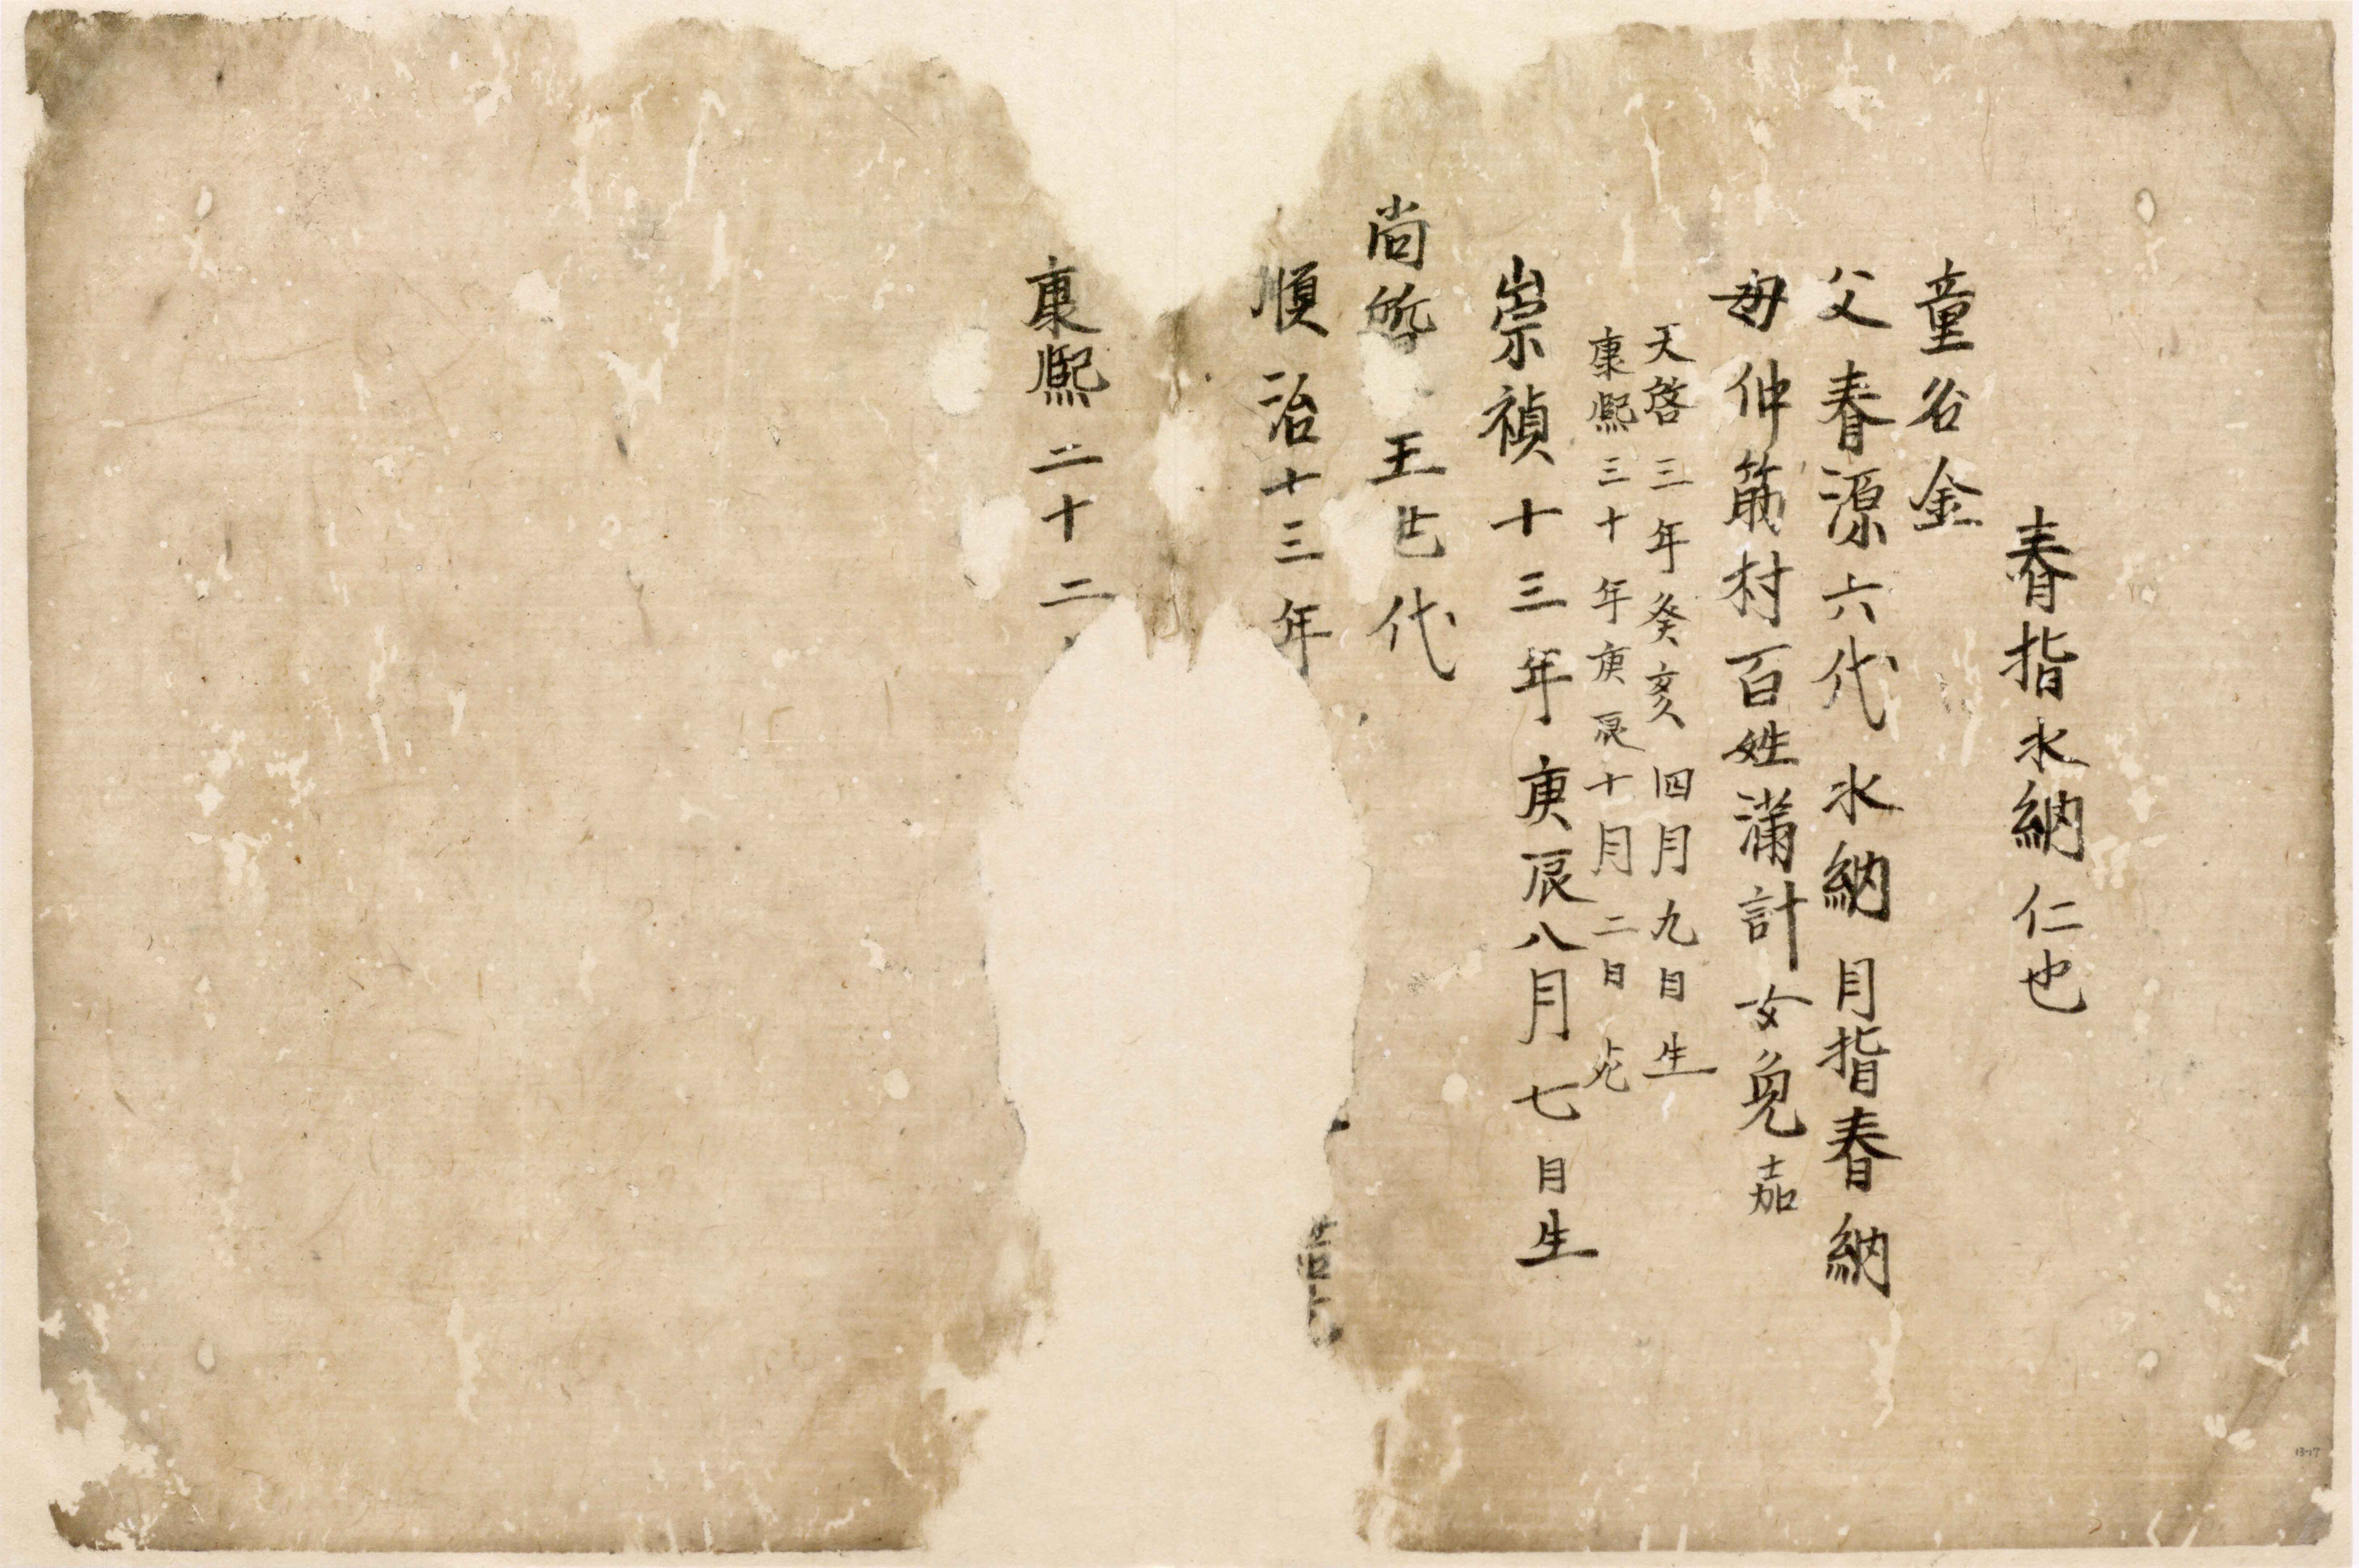 春指氷納仁也
童名金
父春源六代氷納目指春納
母仲筋村百姓満計女免嘉
天啓三年癸亥四月九日生
康熙三十年庚辰十月二日死
崇禎十三年庚辰八月七日生
尚 王世代
順治十三年
康熙二十二
13-17